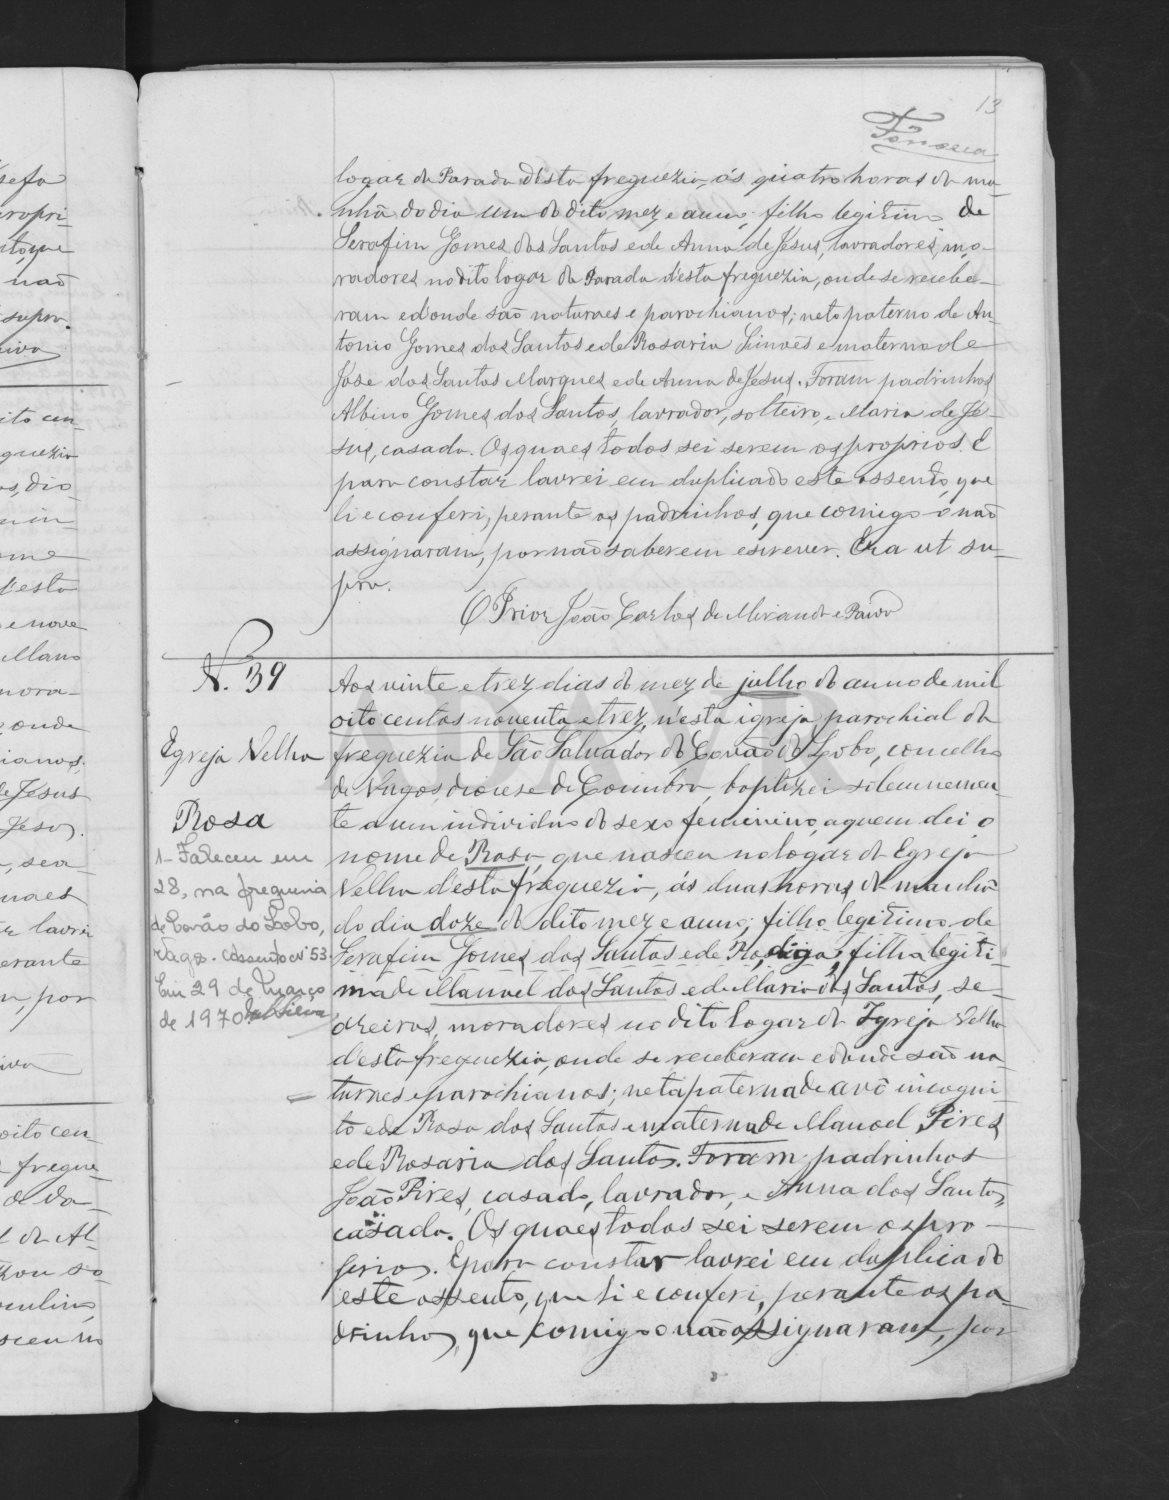 13
Fonseca
logar da Parada d'esta freguezia, ás quatro horas da ma-
nhã do dia um do dito mez e anno; filho legitimo de
Serafim Gomes dos Santos e de Anna de Jesus, lavradores, mo-
radores no dito logar da Parada d'esta freguezia, onde se recebe-
ram e d'onde são naturaes e parochianos; neto paterno de An-
tonio Gomes dos Santos e de Rosaria Simões e materno de
José dos Santos Marques e de Anna de Jesus. Foram padrinhos
Albino Gomes dos Santos, lavrador, solteiro, e Maria de Je-
sus, casada. Os quaes todos sei serem os proprios. E
para constar lavrei em duplicado este assento, que
li e conferi, perante os padrinhos, que comigo o não
assignaram, por não saberem escrever. Era ut su-
pra.
O Prior João Carlos de Miranda e Paiva
N. 39
Egreja Velha
Rosa
1- Faleceu em
28, na freguesia
de Covão do Lobo,
Vagos. Assento nº 53.
Em 29 de Março
de 1970. Silva
Aos vinte e trez dias do mez de julho do anno de mil
oito centos noventa e trez, n'esta igreja parochial da
freguezia de São Salvador do Covão do Lobo, concelho
de Vagos, diocese de Coimbra, baptizei solemnemen-
te a um individuo do sexo femenino, a quem dei o
nome de Rosa, que nasceu no logar da Egreja
Velha d'esta freguezia, ás duas horas da manhã
do dia doze do dito mez e anno; filha legitima de
Serafim Gomes dos Santos e de Rosa, digo, filha legiti-
ma de Manoel dos Santos e de Maria dos Santos, se-
areiros, moradores no dito logar da Igreja Velha
d'esta freguezia, onde se receberam e d'onde são na-
turaes e parochianos; neta paterna de avô incogni-
to e de Rosa dos Santos e materna de Manoel Pires
e de Rosaria dos Santos. Foram padrinhos
João Pires, casado, lavrador, e Anna dos Santos,
casada. Os quaes todos sei serem os pro-
prios. E para constar lavrei em duplicado
este assento, que li e conferi, perante os pa-
drinhos, que comigo o não assignaram, por